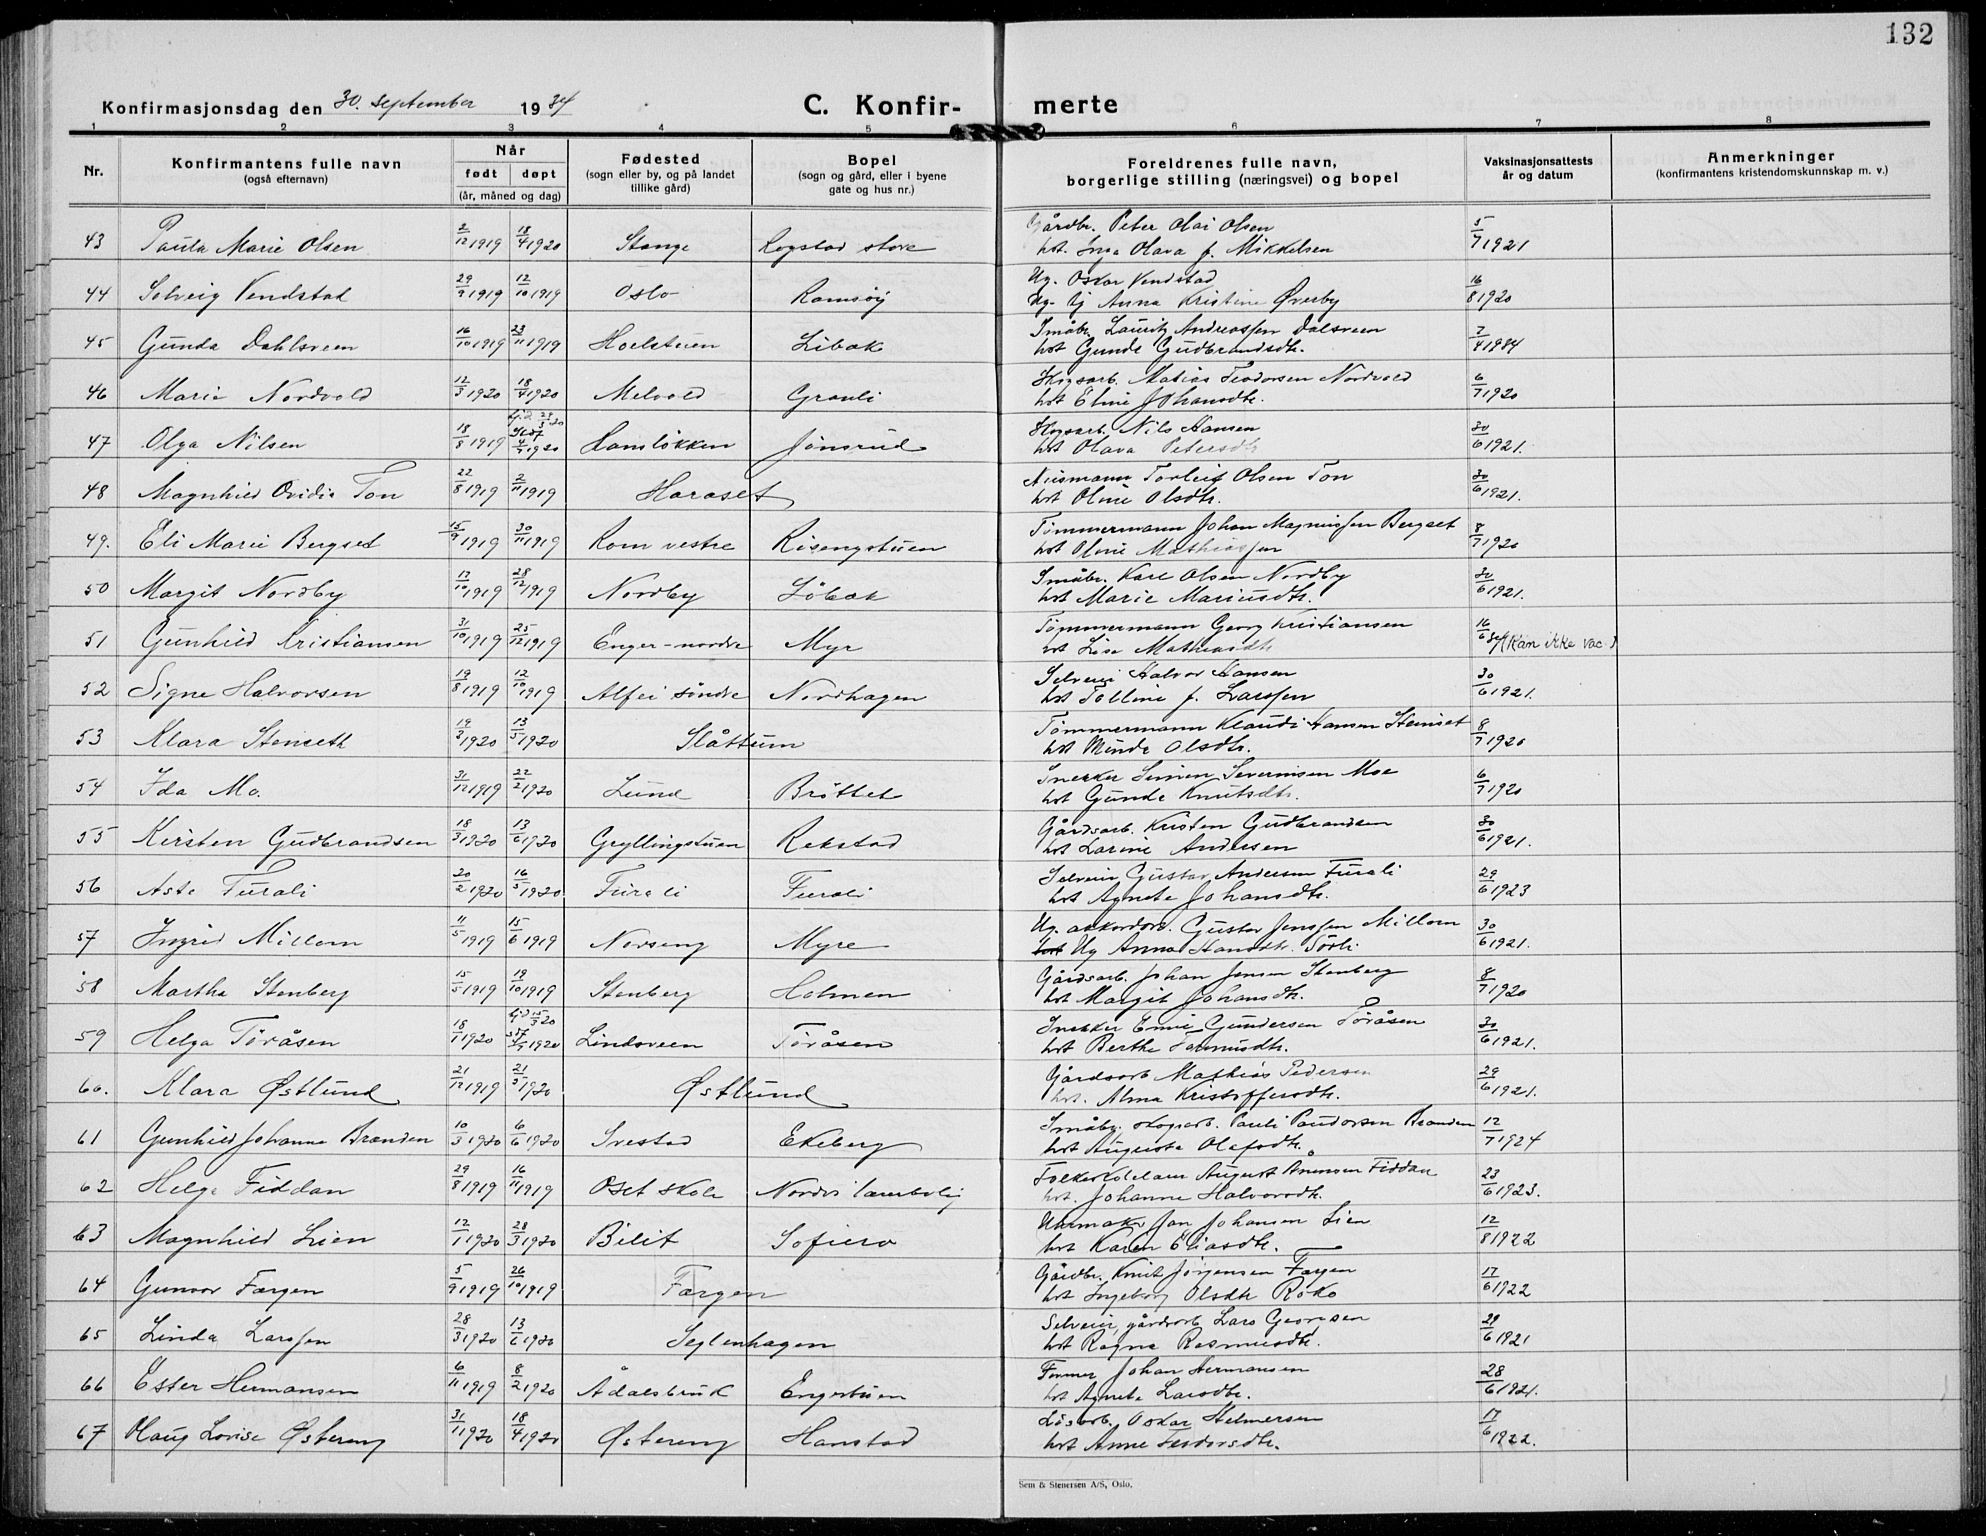 132
Konfirmasjonsdag den 30. september 1934 C. Konfirmerte
1 2 3 4 5 6 7 8
Nr. Konfirmantens fulle navn (også efternavn) Når født døpt (år, måned og dag) Fødested (sogn eller by, og på landet tillike gård) Bopel (sogn og gård, eller i byene gate og hus nr.) Foreldrenes fulle navn, borgerlige stilling (næringsvei) og bopel Vaksinasjonsattests år og datum Anmerkninger (konfirmantens kristendomskunnskap m. v.)
43 Paula Marie Olsen 2/12 1919 18/4 1920 Stange Rogstad store Gårdbr. Peter Olai Olsen 5/7 1921
hst. Inga Olava f. Mikkelsen
44 Solveig Vendstad 29/9 1919 12/10 1919 Oslo Romsøy Ug. Oskar Vendstad 16/8 1920
Ug. tj Anna Kristine Øverby
45 Gunda Dahlsveen 16/10 1919 23/11 1919 Hoelstuen Libak Småbr. Lauritz Andreassen Dalsveen 7/4 1984
hst Gunda Gudbrandsdtr.
46 Marie Nordvold 12/3 1920 18/4 1920 Melvold Granli Skogsarb. Matias Teodorsen Nordvold 6/7 1920
hst Eline Johansdtr.
47 Olga Nilsen 18/8 1919 4/4 1920 Hansløkken Jønsrud Skogsarb. Nils Hansen 30/6 1921.
hst Olava Petersdtr
48 Magnhild Ovidia Ton 22/8 1919 2/11 1919 Haraset Torleif Olsen Ton 30/6 1921.
hst Oline Olsdtr.
49. Eli Marie Bergset 15/9 1919 30/11 1919 Rom vestre Risengstuen Tømmermann Johan Magnussen Bergset 8/7 1920
hst Oline Mathiassen
50 Margit Nordby 17/10 1919 28/12 1919 Nordby Løbak Småbr. Karl Olsen Nordby 30/6 1921.
hst Marie Mariusdtr.
51 Gunhild Kristiansen 31/10 1919 25/12 1919 Enger-nordre Myr Tømmermann Georg Kristiansen 16/6 34 (Kan ikke vac.)
hst Lise Mathiasdtr
52 Signe Halvorsen 19/8 1919 12/10 1919 Alfei søndre Nordhagen Selveier Halvor Hansen 30/6 1921.
hst Tolline f. Larssen
53 Klara Stenseth 19/3 1920 13/5 1920 Slåttum Tømmermann Klaudi Hansen Stenset 8/7 1920
hst Minda Olsdtr.
54 Ida Mo. 31/12 1919 22/2 1920 Lund Brøttet Snekker Simen Severinsen Moe 6/7 1920
hst Gunda Knutsdtr.
55 Kirsten Gudbrandsen 18/3 1920 13/6 1920 Gryllingstuen Rekstad Gårdsarb. Kristen Gudbrandsen 30/6 1921.
hst Larine Andersen
56 Asta Furali 20/2 1920 16/5 1920 Furali Furali Selveier Gustav Andersen Furali 29/6 1923
hst Agnete Johansdtr.
57 Ingrid Millom 11/5 1919 15/6 1919 Norseng Myre Ug. akkordarb. Gustav Jenssen Millom 30/6 1921.
hst Ug Anna Hansdtr. Sørli
58 Martha Stenberg 15/5 1919 19/10 1919 Stenberg Holmen Gårdsarb. Johan Jensen Stenberg 8/7 1920
hst Margit Johansdtr.
59 Helga Tøråsen 18/1 1920 hj.d 15/3 20 Lindsveen Tøråsen Snekker Emil Gundersen Tøråsen 30/6 1921.
hst Berthe
60. Klara Østlund 21/12 1919 21/3 1920 Østlund Gårdsarb Mathias Pedersen 29/6 1921.
hst. Alma Kristoffersdtr.
61 Gunhild Johanne Branden 10/3 1920 6/6 1920 Svestad Ekeberg Småbr. skogsarb. Pauli Paudersen Branden 12/7 1924
hst Augusta Olafsdtr.
62 Helga Fiddan 29/8 1919 16/11 1919 Oset skole Nordvi lærerbolig August Fiddan 23/6 1923.
hst. Johanne Halvorsdtr.
63 Magnhild Lien 12/1 1920 28/3 1920 Bilit Sofiero Urmaker Jan Johansen Lien 12/8 1922
hst Karen Eliasdtr.
64 Gunvor Færgen 5/9 1919 26/10 1919 Færgen Gårdbr. Knut Jørgensen Færgen 17/6 1922
hst Ingeborg Olsdtr Roko
65 Linda Larssen 28/3 1920 13/6 1920 Seglenhagen Selveier, gårdsarb Lars Georgsen 29/6 1921
hst Ragna Rasmusdtr.
66 Ester Hermansen 6/11 1919 8/2 1920 Ådalsbruk Engestuen Johan Hermansen 28/6 1921.
hst Agneta Larsdtr.
67 Olaug Lovise Østereng 31/1 1920 18/4 1920 Østereng Hanstad Løsarb. Oskar Helmersen 17/6 1922.
hst Anne Teodorsdtr.
Sem & Stenersen A/S, Oslo.